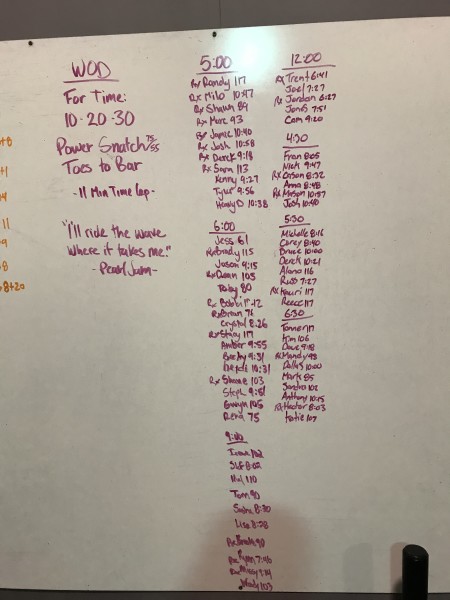 WOD
For Time:
10-20-30
Power Snatch 75/55
Toes to Bar
-11 Min Time Cap-
"I'll ride the wave
where it takes me."
-Pearl Jam-
5:00
Rx Randy 117
Rx Milo 10:47
Rx Shawn 89
Rx Marc 93
Rx Jamie 10:40
Rx Josh 10:58
Rx Derek 9:18
Rx Sara 113
Kenny 9:27
Tyler 9:56
Henry D 10:38
6:00
Jess 61
Rx Brady 115
Jason 9:15
Rx Dean 105
Toby 80
Rx Bobbi
Rx Brian 76
Crystal 8:26
Rx Stacy 117
Amber 9:55
9:31
10:31
Rx Shane 103
Steph 9:51
Gwyn 105
Rena 75
9:00
102
8:02
110
Tom 90
Sasha 8:30
Lisa 8:28
Rx
Rx Ryan 7:46
Rx Missy
103
12:00
Rx Trent 6:41
Joel 7:27
Rx Jordan 6:27
Jonas 7:51
Cam 9:20
4:30
Fran 8:05
Nick 9:47
Rx 8:32
Anna 8:48
Rx Mason 10:57
Josh 10:40
5:30
Michelle 8:16
Corey 8:40
Bruce 10:00
Derek 10:21
Alana 116
Russ 7:27
Rx Kauri 117
Reece 117
6:30
Tanner 117
Kim 106
Dave 9:18
Rx Mandy 98
Dallas 10:00
Mark 85
Sandra 102
Anthony 10:15
Rx Hector 8:03
Katie 107
+8
+1
+4
11
+9
+8
8+20